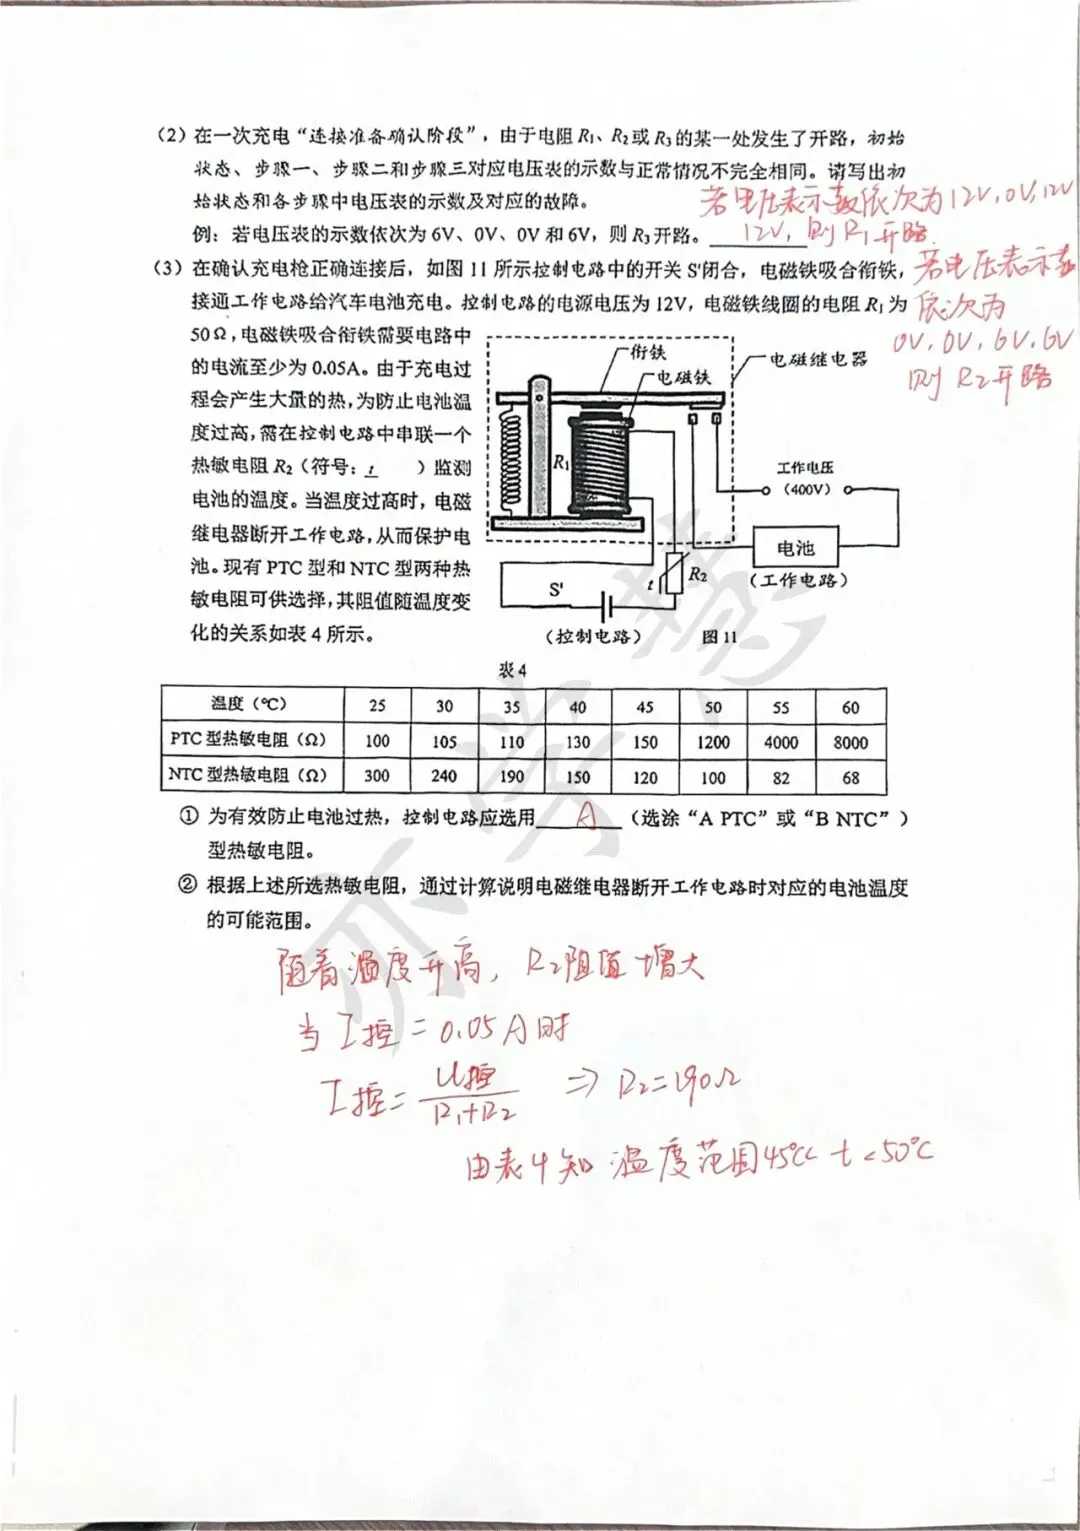 (2) 在一次充电“连接准备确认阶段”,由于电阻 R₁、R₂或 R₃的某一处发生了开路,初始
状态、步骤一、步骤二和步骤三对应电压表的示数与正常情况不完全相同。请写出初
始状态和各步骤中电压表的示数及对应的故障。
若电压表示数依次为12V,0V,12V
例:若电压表的示数依次为 6V、0V、0V 和 6V,则 R₃开路。
12V,则R₁开路
(3) 在确认充电枪正确连接后,如图 11 所示控制电路中的开关 S'闭合,电磁铁吸合衔铁,
若电压表示数
接通工作电路给汽车电池充电。控制电路的电源电压为 12V,电磁铁线圈的电阻 R₁为
依次为
0V,0V,6V,6V
则R₂开路
50Ω,电磁铁吸合衔铁需要电路中
的电流至少为 0.05A。由于充电过
程会产生大量的热,为防止电池温
度过高,需在控制电路中串联一个
热敏电阻 R₂(符号: t )监测
电池的温度。当温度过高时,电磁
继电器断开工作电路,从而保护电
池。现有 PTC 型和 NTC 型两种热
敏电阻可供选择,其阻值随温度变
化的关系如表 4 所示。
衔铁
电磁铁
电磁继电器
R₁
工作电压
(400V)
电池
(工作电路)
t
R₂
S'
(控制电路)
图 11
表 4
温度(℃) 25 30 35 40 45 50 55 60
PTC 型热敏电阻(Ω) 100 105 110 130 150 1200 4000 8000
NTC 型热敏电阻(Ω) 300 240 190 150 120 100 82 68
① 为有效防止电池过热,控制电路应选用 A (选涂“A PTC”或“B NTC”)
型热敏电阻。
② 根据上述所选热敏电阻,通过计算说明电磁继电器断开工作电路时对应的电池温度
的可能范围。
随着温度升高,R₂阻值增大
当I控=0.05A时
I控=U控/(R₁+R₂) ⇒ R₂=190Ω
由表4知 温度范围45℃<t<50℃